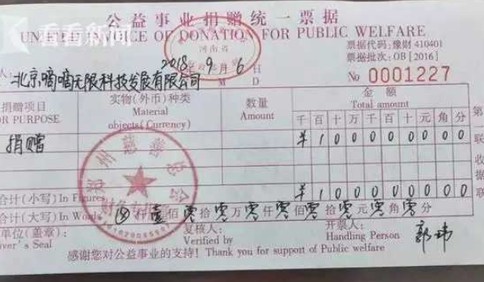 看看新闻
公益事业捐赠统一票据
UNIFIED INVOICE OF DONATION FOR PUBLIC WELFARE
河南省
票据代码:豫财 410401
2018 9 6
票据批次:OB[2016]
Y M D
No 0001227
北京嘀嘀无限科技发展有限公司
捐赠项目 实物(外币)种类 数量 金额
FOR PURPOSE Material Amount Total amount
objects(Currency) 千百十万千百十元角分
捐赠 ¥10000000
合计(小写)In Figures ¥10000000
合计(大写)In Words 壹佰零拾零万零仟零佰零拾零元零角零分
单位(盖章): 复核人: 开票人:
Verified by Handling Person 郭玮
感谢您对公益事业的支持!Thank you for support of Public welfare